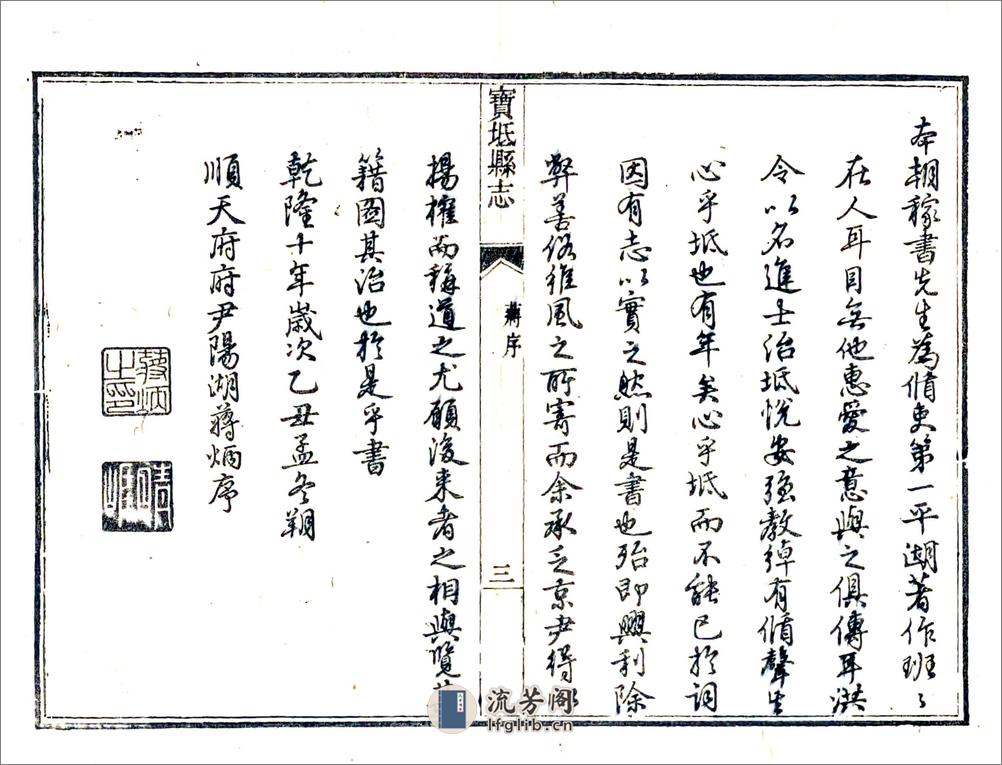 本朝稼書先生為循吏第一平湖著作班〻
在人耳目無他惠愛之意與之俱傳耳洪
令以名進士治坻悅安強教綽有循聲生
心乎坻也有年矣心乎坻而不能已於詞
因有志以實之然則是書也殆即興利除
弊善俗維風之所寄而余承乏京尹得
寶坻縣志
蔣序
三
揚榷而稱道之尤願後来者之相與覽其
籍圖其治也於是乎書
乾隆十年歲次乙丑孟冬朔
順天府府尹陽湖蔣炳序
蔣炳之印
流芳阁
lfglib.cn